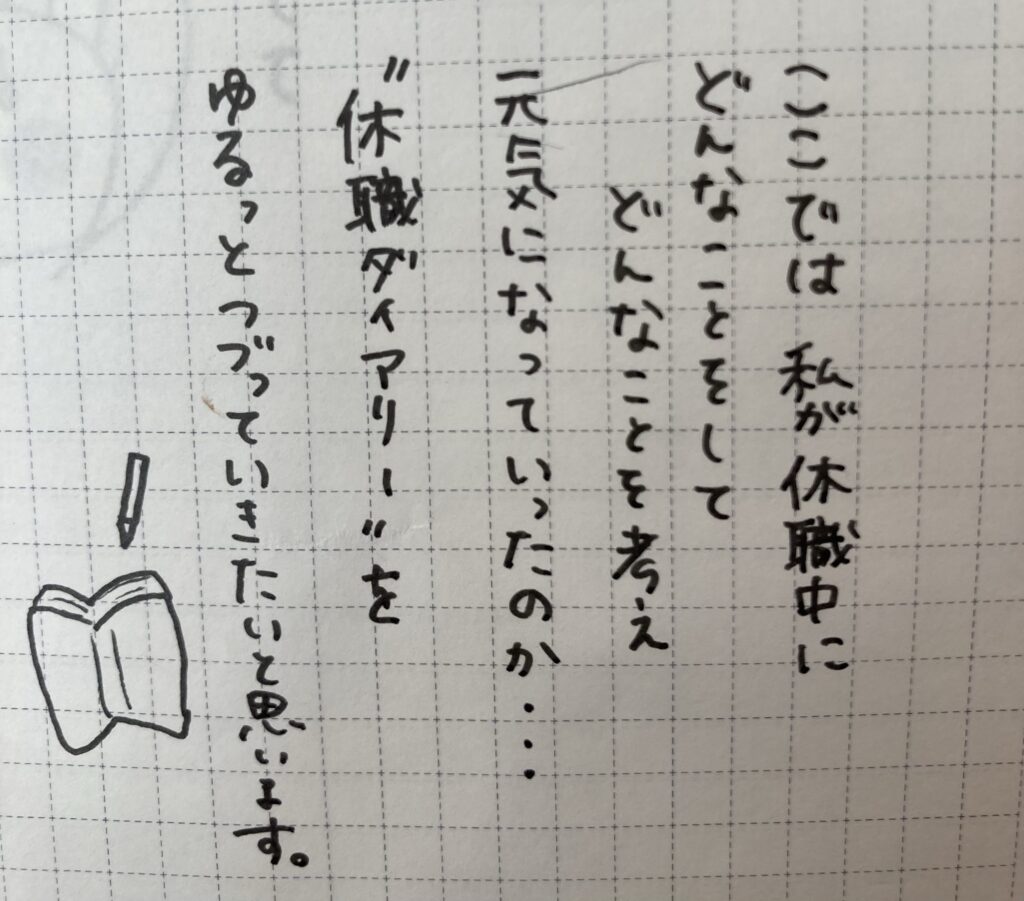 ここでは 私が休職中に
どんなことをして
どんなことを考え
元気になっていったのか・・・
"休職ダイアリー"を
ゆるっとつづっていきたいと思います。